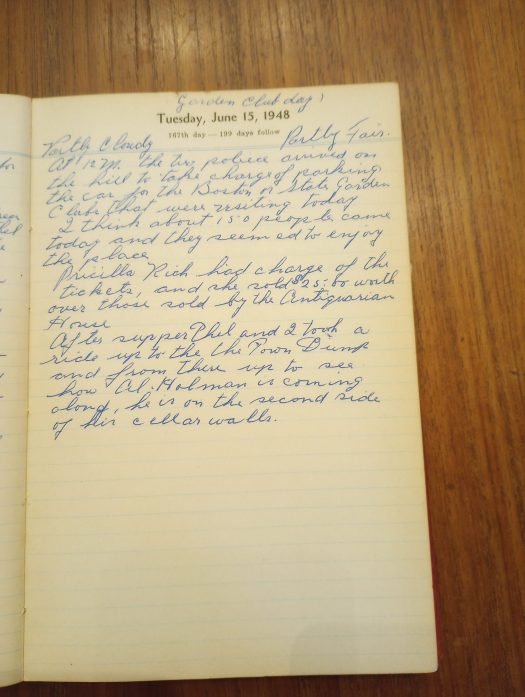 Garden Club day!
Tuesday, June 15, 1948
167th day — 199 days follow
Partly Cloudy Partly Fair.
At 12 P. the two police arrived on
the hill to take charge of parking
the car for the Boston or State Garden
Clubs that were visiting today
I think about 150 people came
today and they seemed to enjoy
the place
Pricilla Rich had charge of the
tickets, and she sold $25:00 worth
over those sold by the Antiquarian
House
After supper Phel and I took a
ride up to the the Town Dump
and from there up to see
how Al. Holman is coming
along, he is on the second side
of his cellar walls.